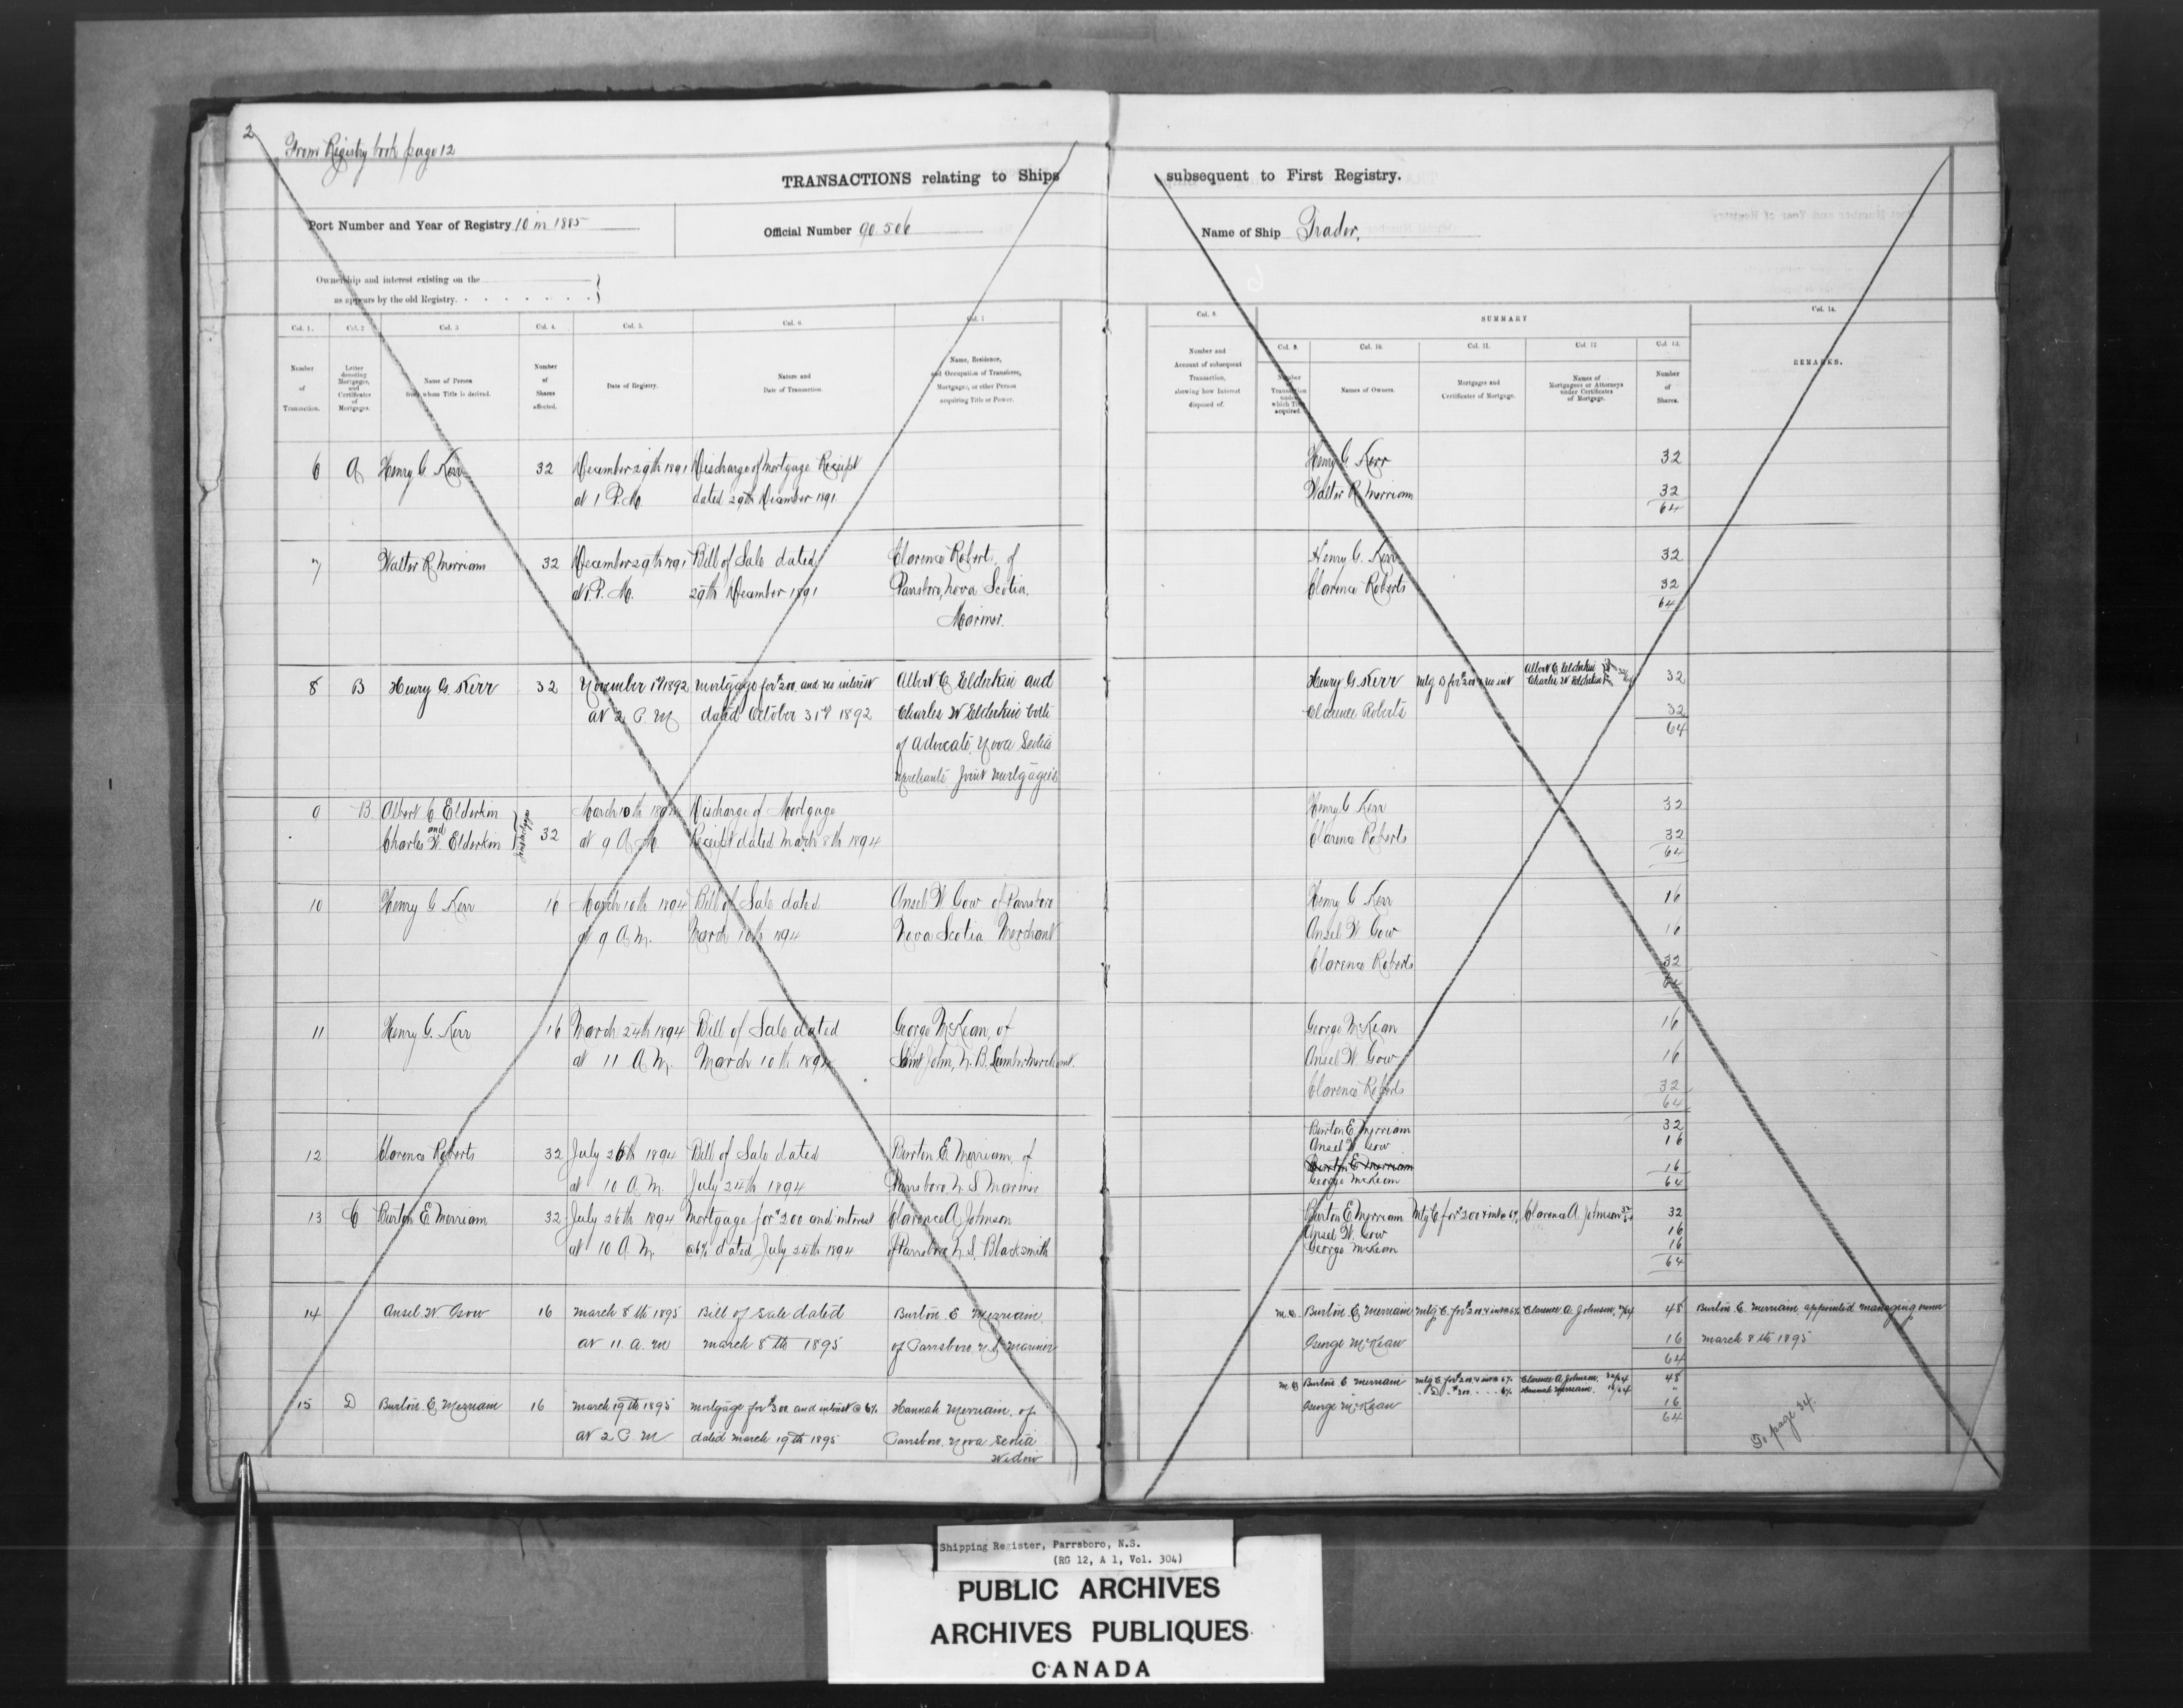 2
From Registry book page 12
TRANSACTIONS relating to Ships subsequent to First Registry.
Port Number and Year of Registry 10 in 1885
Official Number 90.506
Name of Ship Trader,
Ownership and interest existing on the
as appears by the old Registry.
Col. 1. Col. 2 Col. 3 Col. 4. Col. 5. Col. 6 Col. 7
Number of Transaction.
Letter denoting Mortgages, and Certificates of Mortgages.
Name of Person from whom Title is derived.
Number of Shares affected.
Date of Registry.
Nature and Date of Transaction.
Name, Residence, and Occupation of Transferee, Mortgagee, or other Person acquiring Title or Power.
Col. 8.
Number and Account of subsequent Transaction, showing how Interest disposed of.
SUMMARY
Col. 9. Col. 10. Col. 11. Col. 12 Col. 13.
Number Transaction under which Title acquired.
Names of Owners.
Mortgages and Certificates of Mortgage.
Names of Mortgagees or Attorneys under Certificates of Mortgage.
Number of Shares.
Col. 14.
REMARKS.
6 A Henry G. Kerr 32 December 29th 1891 Discharge of Mortgage Receipt
at 1 P.M. dated 29th December 1891
Henry G. Kerr 32
Walter R Merriam 32
64
7 Walter R Merriam 32 December 29th 1891 Bill of Sale dated Clarence Roberts, of
at 1. P. M. 29th December 1891 Parrsboro, Nova Scotia,
Mariner.
Henry G. Kerr 32
Clarence Roberts 32
64
8 B Henry G. Kerr 32 November 1st 1892 mortgage for $200. and no interest Albert C Elderkin and
at 2 P. M dated October 31st 1892 Charles W Elderkin both
of Advocate, Nova Scotia
Merchants Joint Mortgagees
Henry G. Kerr mtg B for $200 & no int Albert C Elderkin 32
Charles W Elderkin
Clarence Roberts 32
64
9 B. Albert C Elderkin March 10th 1894 Discharge of Mortgage
and
Charles W. Elderkin 32 at 9 A. M. Receipt dated March 8th 1894
Henry G Kerr 32
Clarence Roberts 32
64
10 Henry G Kerr 16 March 10th 1894 Bill of Sale dated Ansel W Gow of Parrsboro
at 9 A.M. March 10th 1894 Nova Scotia Merchant
Henry G Kerr 16
Ansel W Gow 16
Clarence Roberts 32
64
11 Henry G. Kerr 16 March 24th 1894 Bill of Sale dated George McKean, of
at 11 A.M. March 10th 1894 Saint John, N. B. Lumber Merchant.
George McKean 16
Ansel W. Gow 16
Clarence Roberts 32
64
12 Clarence Roberts 32 July 26th 1894 Bill of Sale dated Burton E. Merriam, of
at 10 A.M. July 24th 1894 Parrsboro, N. S Mariner
Burton E. Merriam 32
Ansel W. Gow 16
Burton E Merriam 16
George McKean 64
13 C Burton E. Merriam 32 July 26th 1894 Mortgage for $200 and interest Clarence A Johnson
at 10 A. M. @6% dated July 24th 1894 of Parrsboro N. S. Blacksmith
Burton E Merriam Mtg C for $200 & int @ 6% Clarence A Johnson 32/64 32
Ansel W. Gow 16
George McKean 16
64
14 Ansel W Gow 16 March 8th 1895 Bill of Sale dated Burton E Merriam.
at 11 a. m March 8th 1895 of Parrsboro, N.S. Mariner
M.O. Burton E. Merriam Mtg C. for $200 & int @ 6% Clarence A. Johnson, 32/64 48 Burton E. Merriam appointed managing owner
George McKean 16 March 8th 1895
64
15 D Burton E. Merriam 16 March 19th 1895 Mortgage for $300 and interest @ 6% Hannah Merriam, of
at 2 P. M dated March 19th 1895 Parrsboro, Nova Scotia
Widow
M.O Burton E Merriam Mtg C for $200 & int @ 6% Clarence A Johnson. 32/64 48
" D " $300 " " 6% Hannah Merriam. 16/64 "
George McKean 16
64
To page 34.
Shipping Register, Parrsboro, N.S.
(RG 12, A 1, Vol. 304)
PUBLIC ARCHIVES
ARCHIVES PUBLIQUES
CANADA